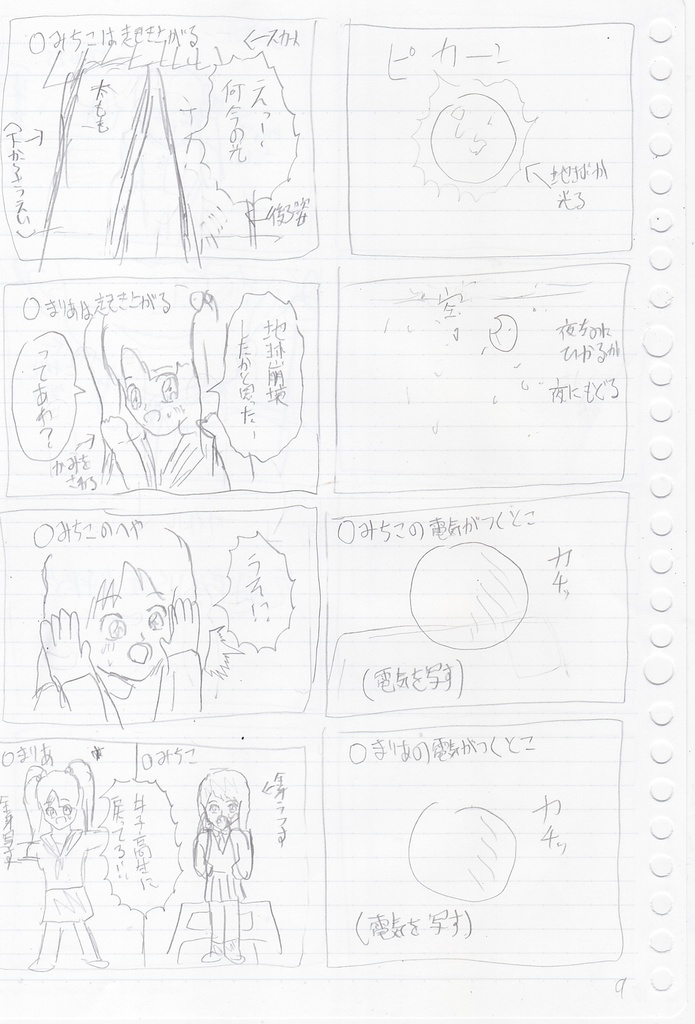 ピカーン
地球が
光る
空
夜なのに
ひかるが
夜にもどる
○みちこの電気がつくとこ
カチッ
(電気を写す)
○まりあの電気がつくとこ
カチッ
(電気を写す)
○みちこは起き上がる
←スカート
えっー
何今の光
太もも
後ろ姿
○まりあは起き上がる
地球崩壊
したかと思たー
ってあれ?
かみを
さわる
○みちこのへや
うそ!!
○まりあ
○みちこ
女子高生に
戻てる!!
全身うつす
全身写す
9